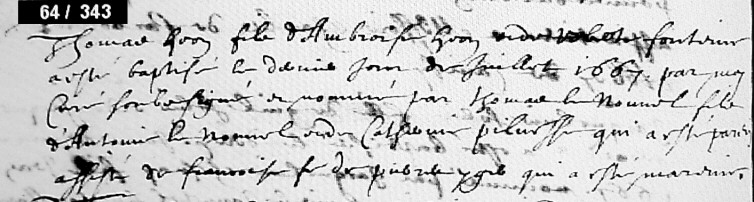 64 / 343
Thomas fils d'Ambroise et de fontaine
a esté baptisé le dernier Jour de Juillet 1667 par moy
Curé soubsigné et nommé par Thomas le fils
d'Antoine le et de Catherine qui a esté parin
assisté de francoise f de pierre qui a esté mareine.